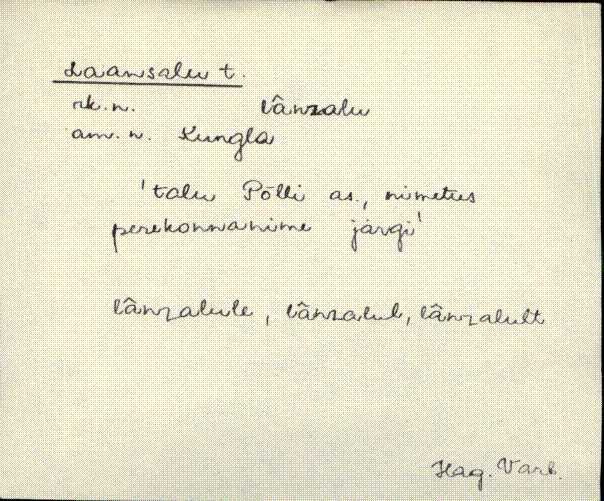 Laansalu t.
rk. n. lânzalu
am. n. Kungla
'talu Põlli as., nimetus
perekonnanime järgi'
lânzalule, lânzalul, lânzalult
Hag. Varb.